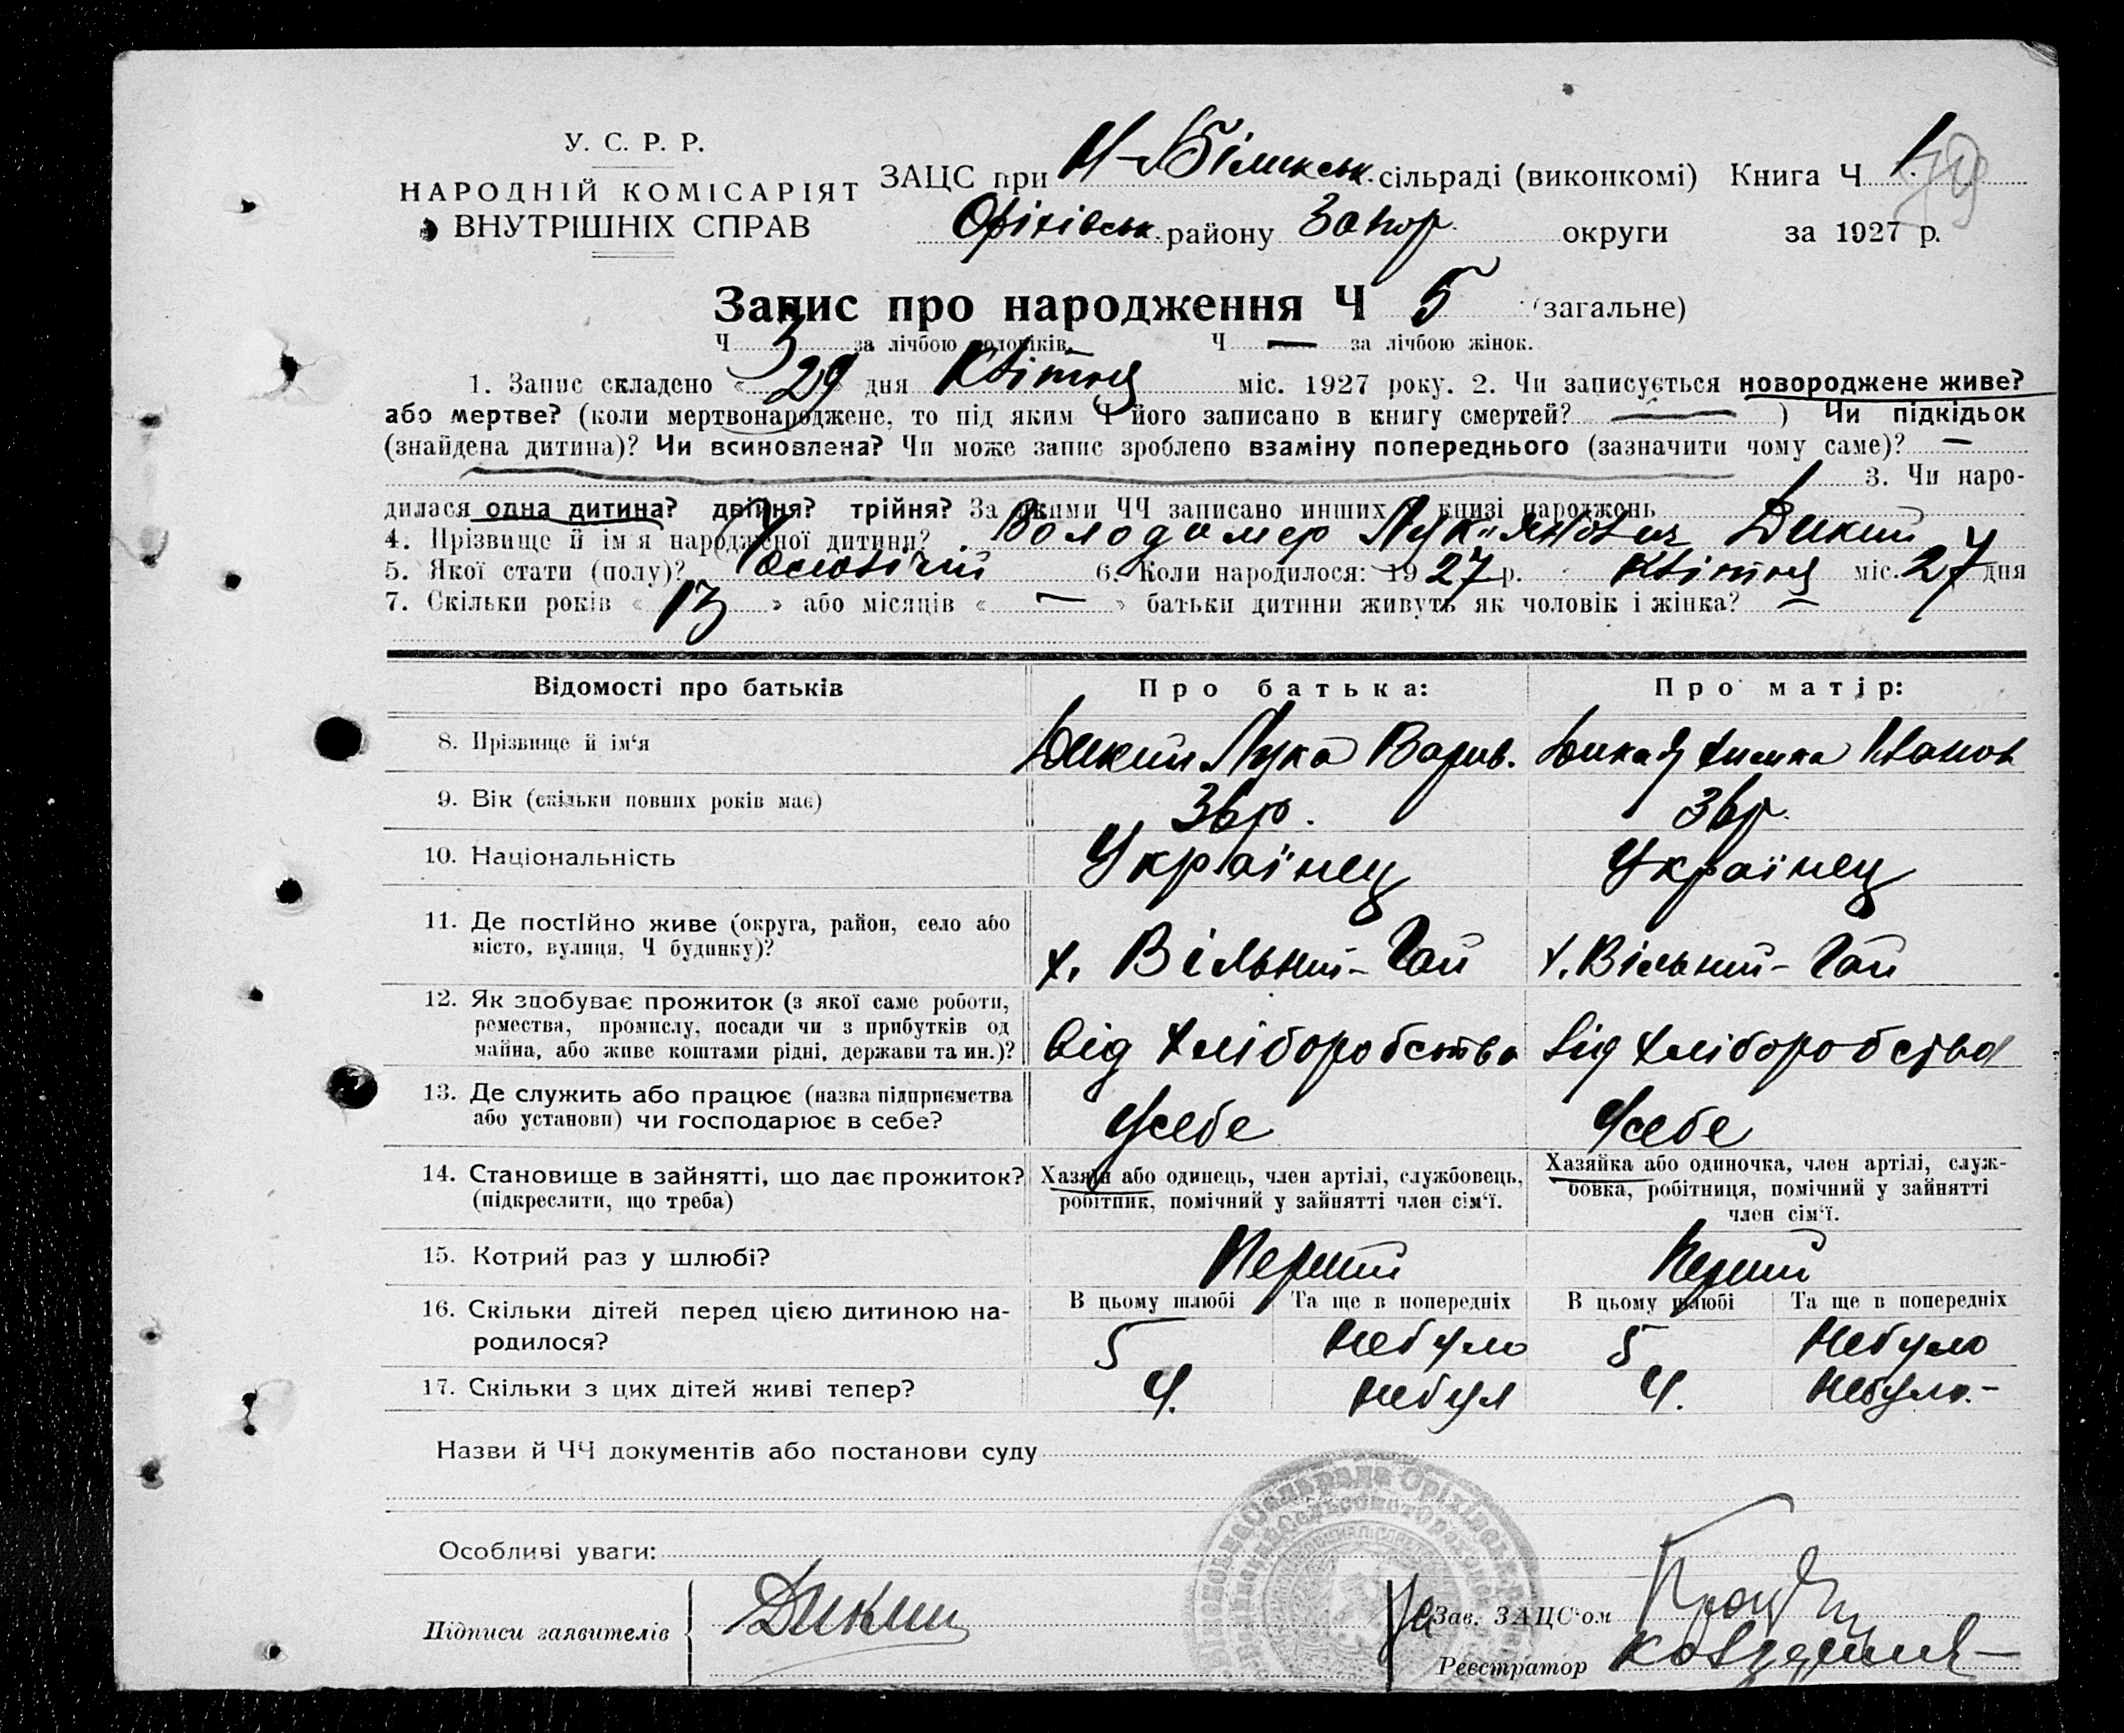 У. С. Р. Р.
НАРОДНІЙ КОМІСАРІЯТ
ВНУТРІШНІХ СПРАВ
ЗАЦС при Н-Білиськ. сільраді (виконкомі) Книга Ч 1.
Оріхівськ. району Запор. округи за 1927 р.
Запис про народження Ч 5 (загальне)
Ч 3 за лічбою чоловіків. Ч — за лічбою жінок.
1. Запис складено « 29 » дня Квітня міс. 1927 року. 2. Чи записується новороджене живе?
або мертве? (коли мертвонароджене, то під яким Ч його записано в книгу смертей? — ) Чи підкідьок
(знайдена дитина)? Чи всиновлена? Чи може запис зроблено взаміну попереднього (зазначити чому саме)? —
3. Чи наро-
дилася одна дитина? двійня? трійня? За якими ЧЧ записано инших у книзі народжень
4. Прізвище й ім'я народженої дитини? Володимер Лук"янович Дикий
5. Якої стати (полу)? Чоловічій 6. Коли народилося: 1927 р. Квітня міс. 27 дня
7. Скільки років « 13 » або місяців « — » батьки дитини живуть як чоловік і жінка? —
Відомості про батьків Про батька: Про матір:
8. Прізвище й ім'я Дикий Лука Варив. Дикая Химка Іванов
9. Вік (скільки повних років має) 36р. 36р.
10. Національність Українец Українец
11. Де постійно живе (округа, район, село або
місто, вулиця, Ч будинку)? х. Вільний-Гай х. Вільний-Гай
12. Як здобуває прожиток (з якої саме роботи,
ремества, промислу, посади чи з прибутків од
майна, або живе коштами рідні, держави та ин.)? від хліборобства від хліборобства
13. Де служить або працює (назва підприємства
або установи) чи господарює в себе? Усебе Усебе
14. Становище в зайнятті, що дає прожиток?
(підкреслити, що треба)
Хазяїн або одинець, член артілі, службовець,
робітник, помічний у зайнятті член сім'ї.
Хазяйка або одиночка, член артілі, служ-
бовка, робітниця, помічний у зайнятті
член сім'ї.
15. Котрий раз у шлюбі? Перший Перший
В цьому шлюбі Та ще в попередніх В цьому шлюбі Та ще в попередніх
16. Скільки дітей перед цією дитиною на-
родилося? 5 Небуло 5 Небуло
17. Скільки з цих дітей живі тепер? 4. небул 4. Небуло.-
Назви й ЧЧ документів або постанови суду
Особливі уваги:
Підписи заявителів Дикий
За Зав. ЗАЦС'ом
Реєстратор